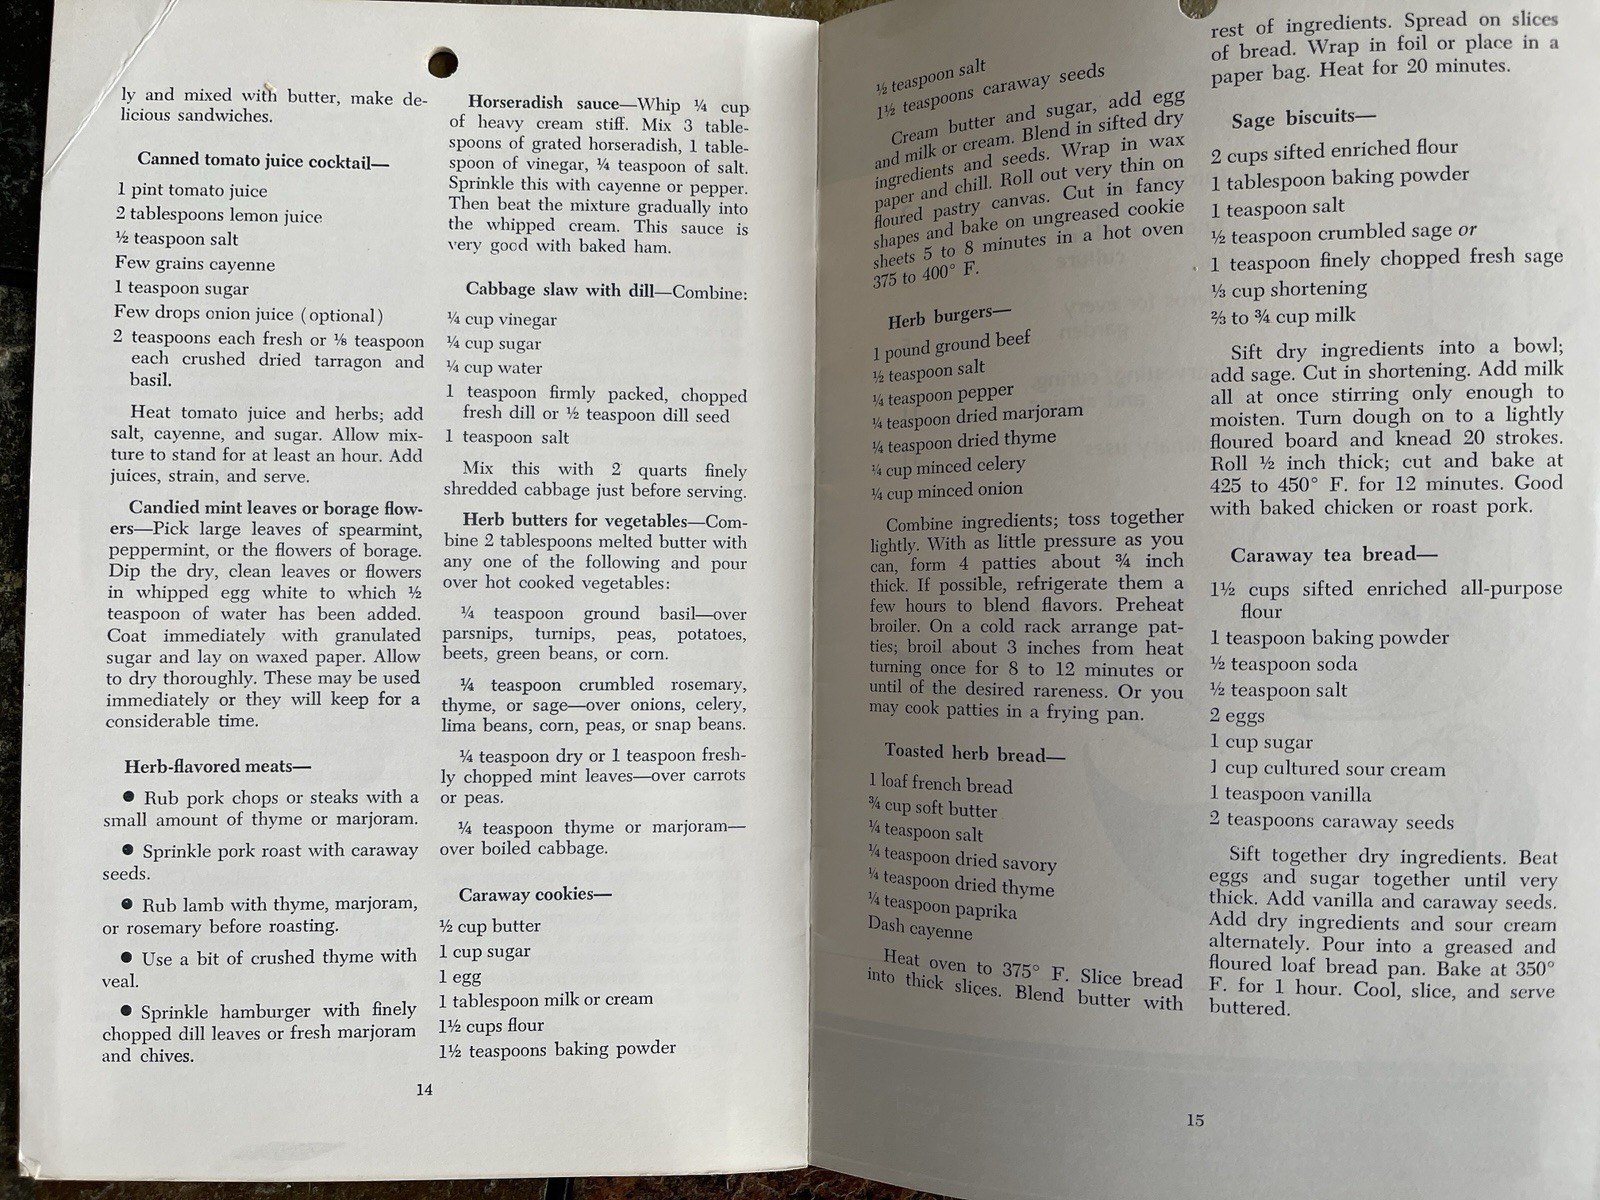 ly and mixed with butter, make de-
licious sandwiches.
Canned tomato juice cocktail—
1 pint tomato juice
2 tablespoons lemon juice
½ teaspoon salt
Few grains cayenne
1 teaspoon sugar
Few drops onion juice (optional)
2 teaspoons each fresh or ⅛ teaspoon
each crushed dried tarragon and
basil.
Heat tomato juice and herbs; add
salt, cayenne, and sugar. Allow mix-
ture to stand for at least an hour. Add
juices, strain, and serve.
Candied mint leaves or borage flow-
ers—Pick large leaves of spearmint,
peppermint, or the flowers of borage.
Dip the dry, clean leaves or flowers
in whipped egg white to which ½
teaspoon of water has been added.
Coat immediately with granulated
sugar and lay on waxed paper. Allow
to dry thoroughly. These may be used
immediately or they will keep for a
considerable time.
Herb-flavored meats—
● Rub pork chops or steaks with a
small amount of thyme or marjoram.
● Sprinkle pork roast with caraway
seeds.
● Rub lamb with thyme, marjoram,
or rosemary before roasting.
● Use a bit of crushed thyme with
veal.
● Sprinkle hamburger with finely
chopped dill leaves or fresh marjoram
and chives.
Horseradish sauce—Whip ¼ cup
of heavy cream stiff. Mix 3 table-
spoons of grated horseradish, 1 table-
spoon of vinegar, ¼ teaspoon of salt.
Sprinkle this with cayenne or pepper.
Then beat the mixture gradually into
the whipped cream. This sauce is
very good with baked ham.
Cabbage slaw with dill—Combine:
¼ cup vinegar
¼ cup sugar
¼ cup water
1 teaspoon firmly packed, chopped
fresh dill or ½ teaspoon dill seed
1 teaspoon salt
Mix this with 2 quarts finely
shredded cabbage just before serving.
Herb butters for vegetables—Com-
bine 2 tablespoons melted butter with
any one of the following and pour
over hot cooked vegetables:
¼ teaspoon ground basil—over
parsnips, turnips, peas, potatoes,
beets, green beans, or corn.
¼ teaspoon crumbled rosemary,
thyme, or sage—over onions, celery,
lima beans, corn, peas, or snap beans.
¼ teaspoon dry or 1 teaspoon fresh-
ly chopped mint leaves—over carrots
or peas.
¼ teaspoon thyme or marjoram—
over boiled cabbage.
Caraway cookies—
½ cup butter
1 cup sugar
1 egg
1 tablespoon milk or cream
1½ cups flour
1½ teaspoons baking powder
14
½ teaspoon salt
1½ teaspoons caraway seeds
Cream butter and sugar, add egg
and milk or cream. Blend in sifted dry
ingredients and seeds. Wrap in wax
paper and chill. Roll out very thin on
floured pastry canvas. Cut in fancy
shapes and bake on ungreased cookie
sheets 5 to 8 minutes in a hot oven
375 to 400° F.
Herb burgers—
1 pound ground beef
½ teaspoon salt
¼ teaspoon pepper
¼ teaspoon dried marjoram
¼ teaspoon dried thyme
¼ cup minced celery
¼ cup minced onion
Combine ingredients; toss together
lightly. With as little pressure as you
can, form 4 patties about ¾ inch
thick. If possible, refrigerate them a
few hours to blend flavors. Preheat
broiler. On a cold rack arrange pat-
ties; broil about 3 inches from heat
turning once for 8 to 12 minutes or
until of the desired rareness. Or you
may cook patties in a frying pan.
Toasted herb bread—
1 loaf french bread
¾ cup soft butter
¼ teaspoon salt
¼ teaspoon dried savory
¼ teaspoon dried thyme
¼ teaspoon paprika
Dash cayenne
Heat oven to 375° F. Slice bread
into thick slices. Blend butter with
rest of ingredients. Spread on slices
of bread. Wrap in foil or place in a
paper bag. Heat for 20 minutes.
Sage biscuits—
2 cups sifted enriched flour
1 tablespoon baking powder
1 teaspoon salt
½ teaspoon crumbled sage or
1 teaspoon finely chopped fresh sage
⅓ cup shortening
⅔ to ¾ cup milk
Sift dry ingredients into a bowl;
add sage. Cut in shortening. Add milk
all at once stirring only enough to
moisten. Turn dough on to a lightly
floured board and knead 20 strokes.
Roll ½ inch thick; cut and bake at
425 to 450° F. for 12 minutes. Good
with baked chicken or roast pork.
Caraway tea bread—
1½ cups sifted enriched all-purpose
flour
1 teaspoon baking powder
½ teaspoon soda
½ teaspoon salt
2 eggs
1 cup sugar
1 cup cultured sour cream
1 teaspoon vanilla
2 teaspoons caraway seeds
Sift together dry ingredients. Beat
eggs and sugar together until very
thick. Add vanilla and caraway seeds.
Add dry ingredients and sour cream
alternately. Pour into a greased and
floured loaf bread pan. Bake at 350°
F. for 1 hour. Cool, slice, and serve
buttered.
15